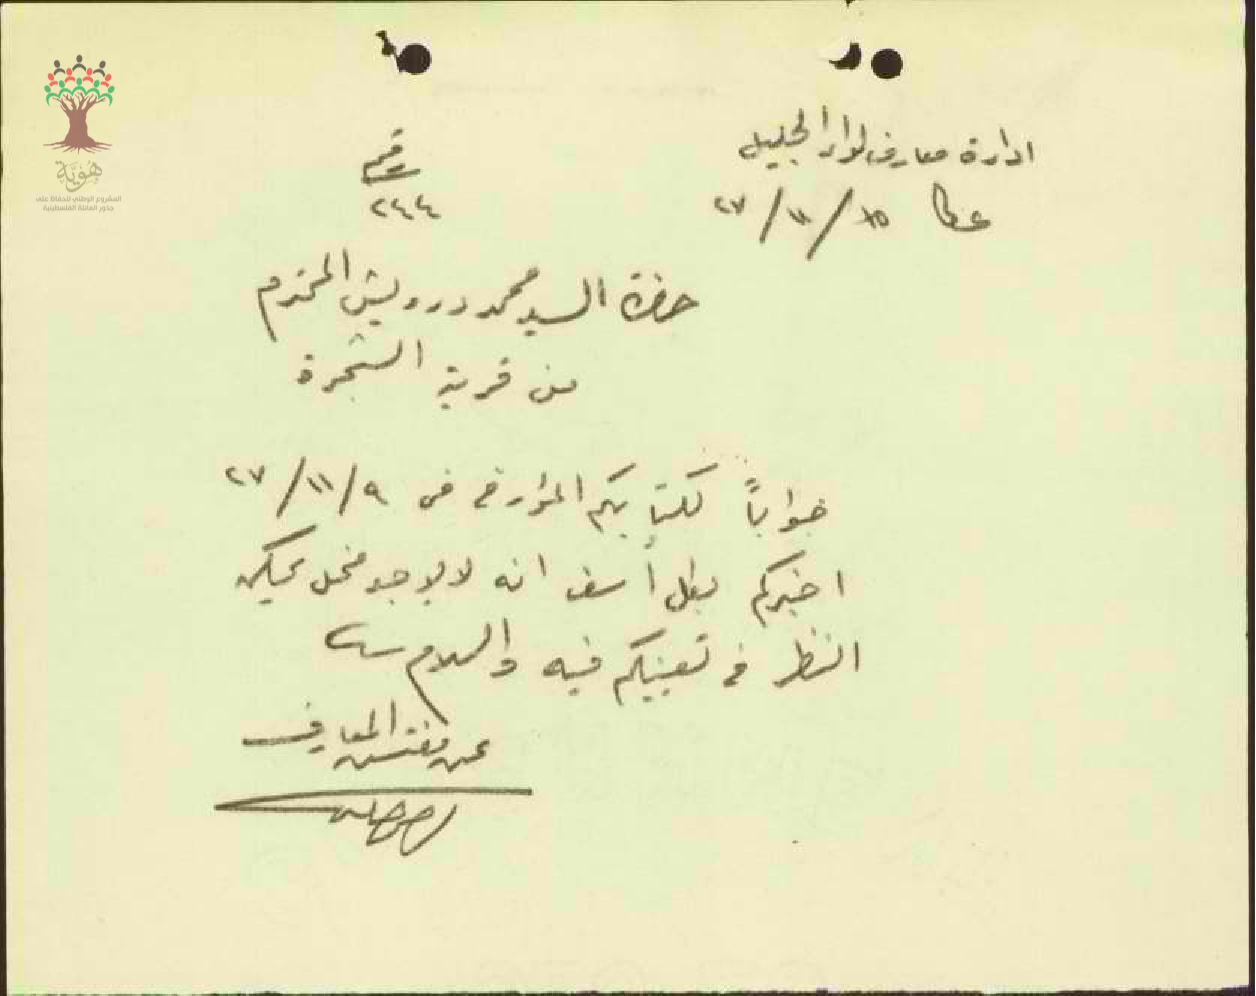 هُوِيَّة
المشروع الوطني للحفاظ على
جذور العائلة الفلسطينية
ادارة معارف لواء الجليل
عكا ١٥ / ١١ / ٢٧
٢٤٤
حضرة السيد محمد درويش المحترم
من قرية الشجرة
جواباً لكتابكم المؤرخ في ٩ / ١١ / ٢٧
اخبركم بكل أسف انه لا يوجد محل يمكن
النظر في تعيينكم فيه والسلام
عن مفتش المعارف